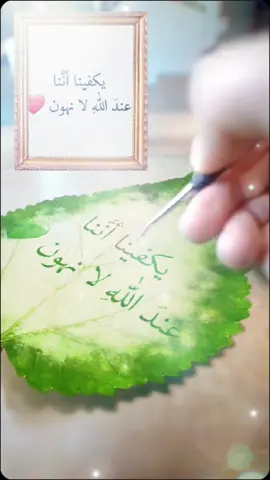 يكفينا أنَّنا
عندَ اللهِ لا نهون ❤️
يكفينا أنَّنا
عندَ اللهِ لا نهون